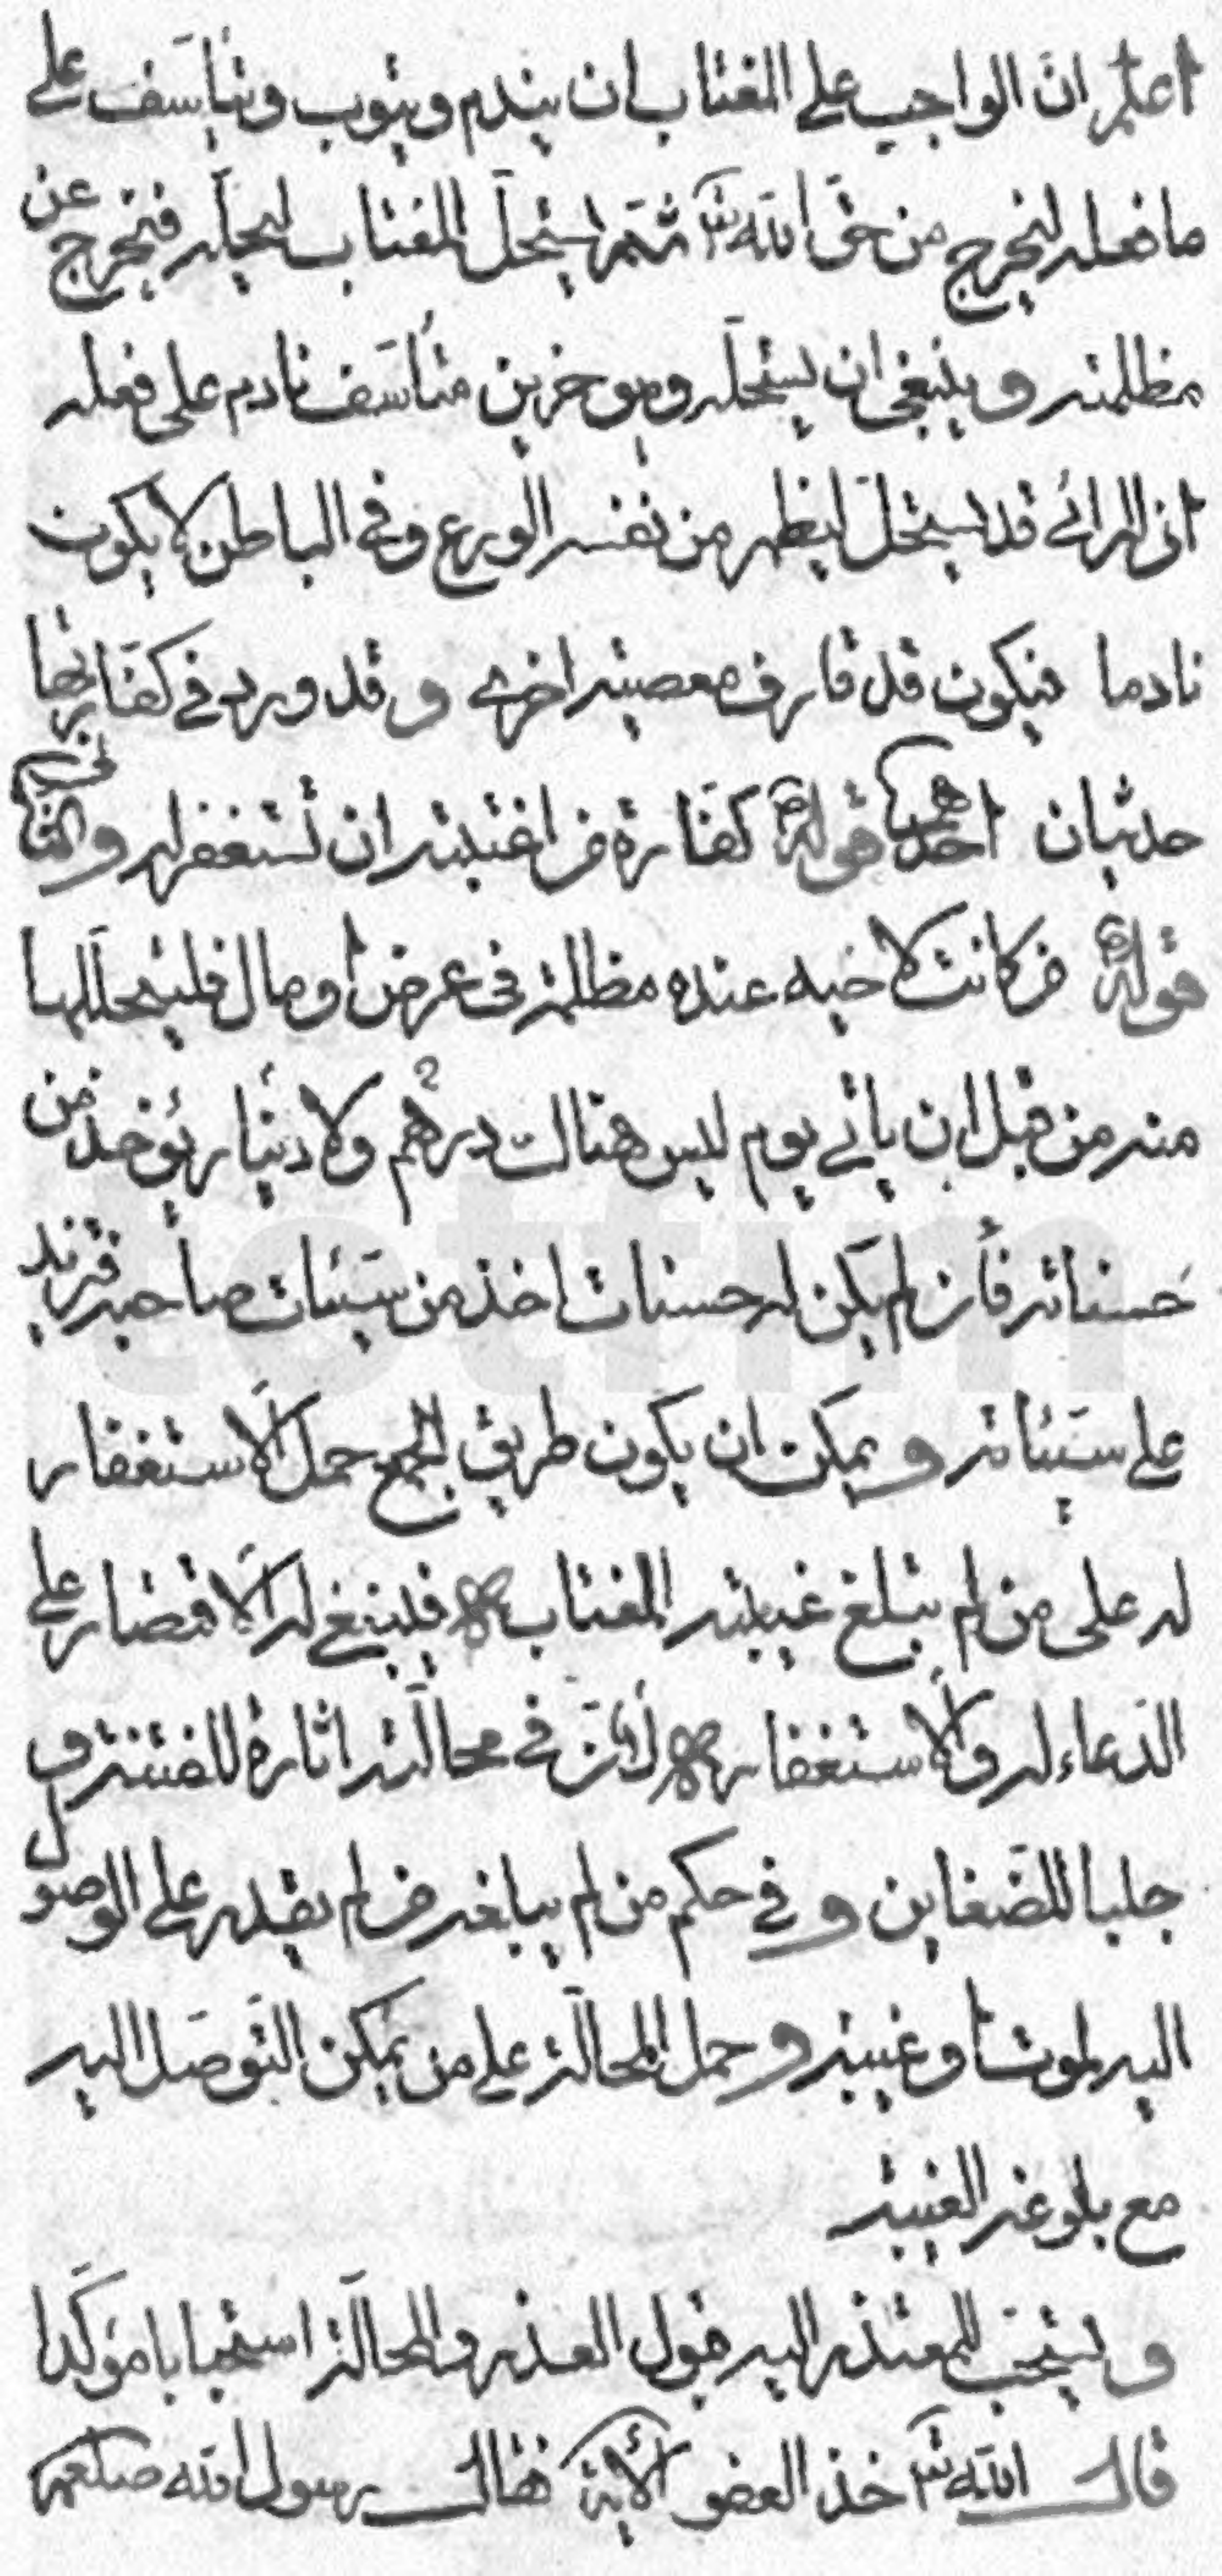 اعلم ان الواجب على المغتاب ان يندم ويتوب ويتأسف على
ما فعله ليخرج من حق الله تع ثم يستحل المغتاب ليحله فيخرج عن
مظلمته وينبغي ان يستحله وهو حزين متأسف نادم على فعله
اذ المرائي قد يستحل ليظهر من نفسه الورع وفي الباطن لا يكون
نادما فيكون قد قارف معصية اخرى وقد ورد في كفارتها
حديثان احدهما قوله ص كفارة من اغتبته ان تستغفر له والثاني
قوله ص من كانت لاخيه عنده مظلمة في عرض او مال فليتحللها
منه من قبل ان يأتي يوم ليس هناك درهم ولا دينار يؤخذ من
حسناته فأن لم يكن له حسنات اخذ من سيئات صاحبه فزيد
على سيئاته ويمكن ان يكون طريق الجمع حمل الاستغفار
له على من لم تبلغ غيبته المغتاب فينبغي له الاقتصار على
الدعاء له والاستغفار لأن في محالته اثارة للفتنة و
جلبا للضغاين وفي حكم من لم يبلغه من لم يقدر على الوصول
اليه لموت أو غيبة وحمل المحالة على من يمكن التوصل اليه
مع بلوغه الغيبة
ويستحب للمعتذر اليه قبول العذر والمحالة استحبابا مؤكدا
قال الله تع خذ العفو الأية فقال رسول الله صلعم